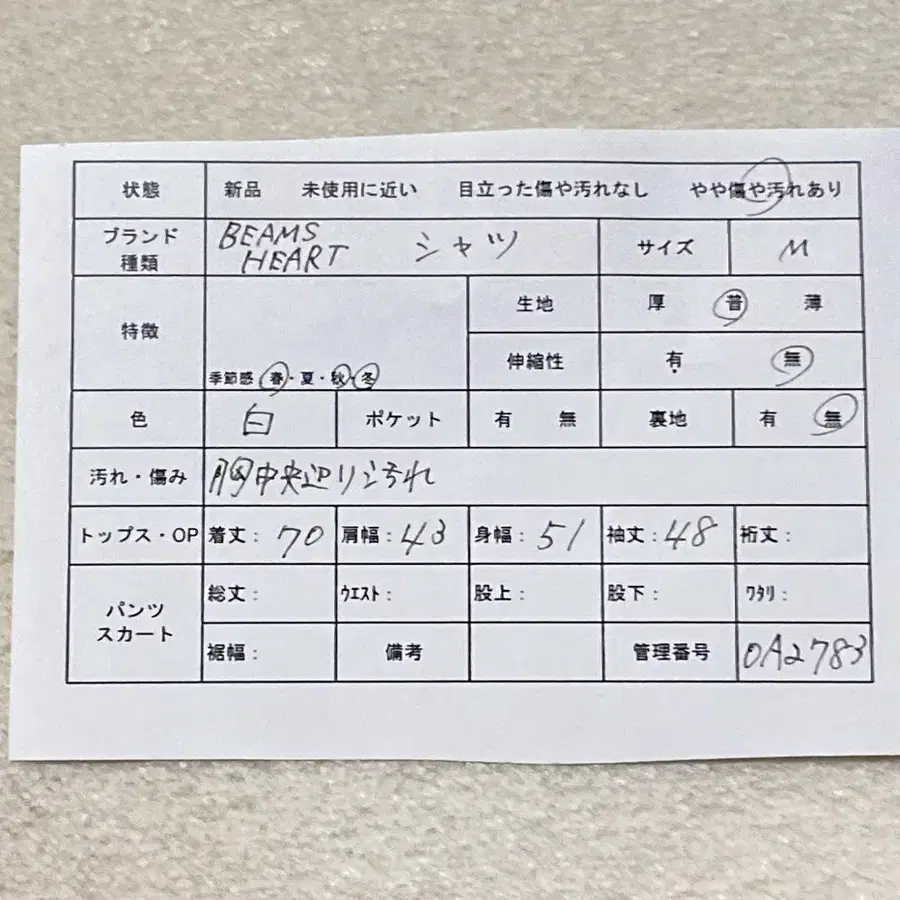 状態 新品 未使用に近い 目立った傷や汚れなし やや傷や汚れあり
ブランド 種類 BEAMS HEART シャツ サイズ M
特徴 季節感 春・夏・秋・冬
生地 厚 普 薄
伸縮性 有 無
色 白 ポケット 有 無 裏地 有 無
汚れ・傷み 胸中央辺り汚れ
トップス・OP 着丈: 70 肩幅: 43 身幅: 51 袖丈: 48 裄丈:
パンツ スカート 総丈: ウエスト: 股上: 股下: ワタリ:
裾幅: 備考 管理番号 0A2783